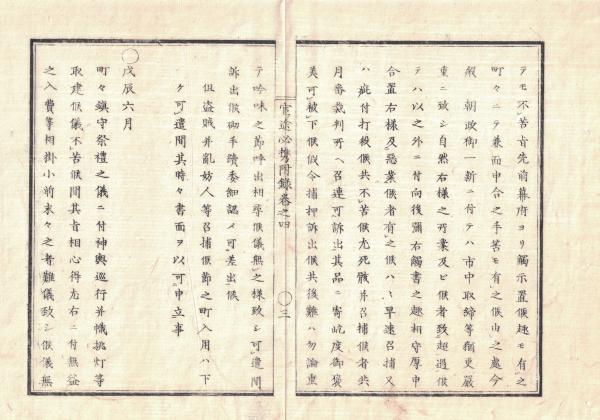 テモ不苦旨先前幕府ヨリ觸示置候趣モ有之
町々ニテ兼而申合之手筈モ有之候由之處今
般 朝政御一新ニ付テハ市中取締等猶更嚴
重ニ致シ自然右樣之所業及ヒ候者致超過候
テハ以之外ニ付向後彌右觸書之趣相守厚申
合置右樣及惡業候者有之候ハヽ早速召捕又
ハ疵付打殺候共不苦候尤死骸并召捕候者共
月番裁判所ヘ召連可訴出其品ニ寄屹度御褒
美可被下候假令捕押訴出候共後難ハ勿論重
官途必携附錄卷之四
〇三
テ吟味之節呼出相尋候儀無之樣致シ可遣間
訴出候砌手續委細認メ可差出候
但盜賊并亂妨人等召捕候節之町入用ハ下
ケ可遣間其時々書面ヲ以可申立事
〇
戊辰六月
町々鎭守祭禮之儀ニ付神輿巡行并幟挑灯等
取建候儀不苦候間其旨相心得尤右ニ付無益
之入費等相掛小前末々之者難儀致シ候儀無